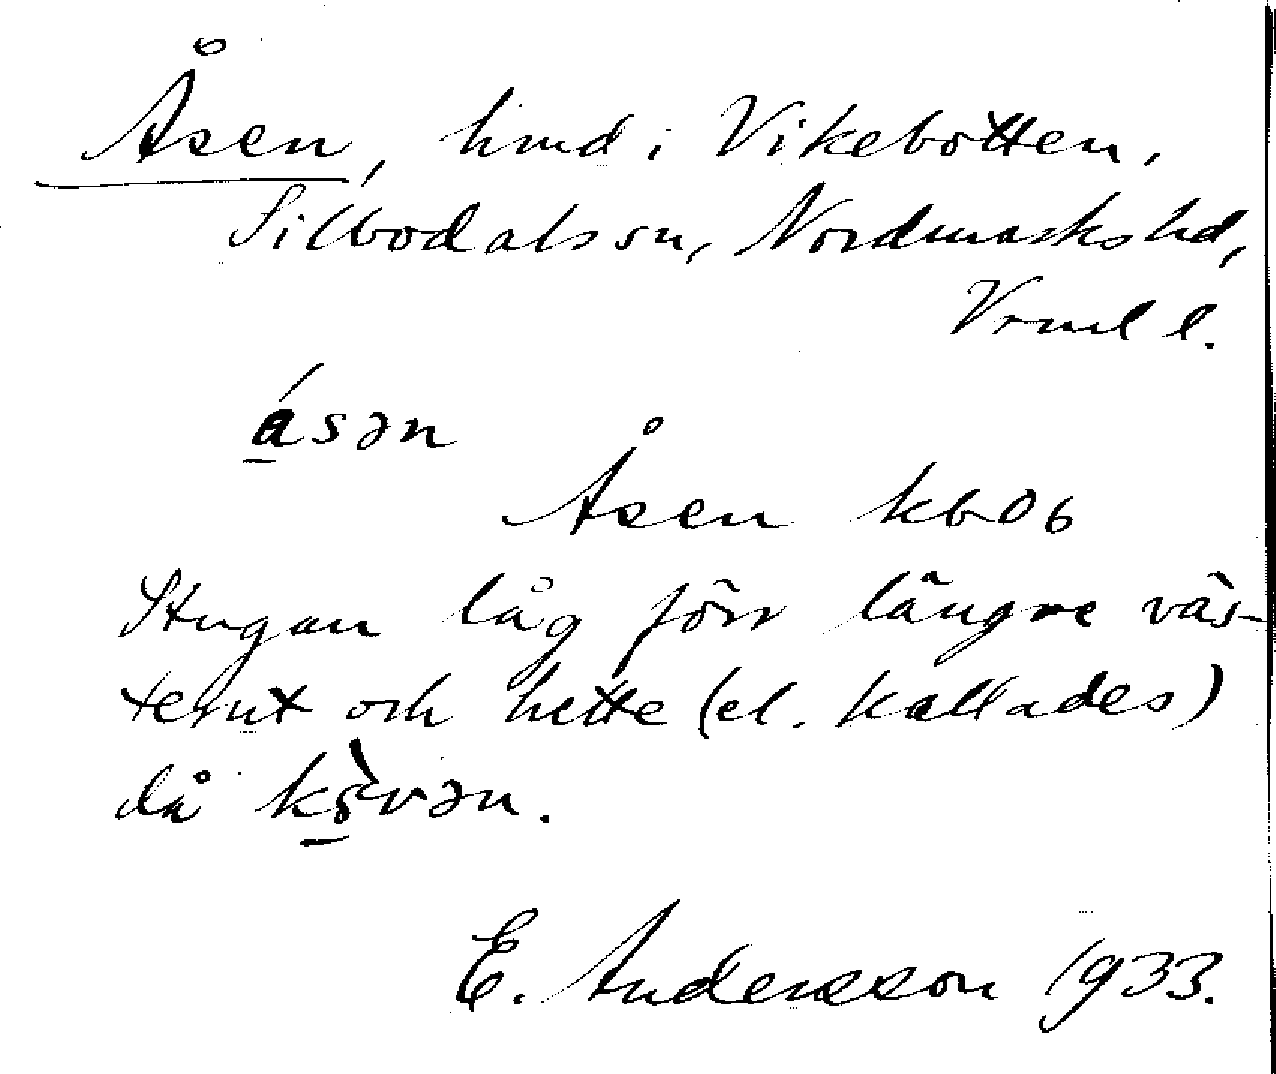 Åsen, hmd i Vikebotten,
Silbodals sn, Nordmarks hd,
Vrml l.
ásən
Åsen kb 06
Stugan låg förr längre väs-
terut och hette (el. kallades)
då kvən.
E. Andersson 1933.